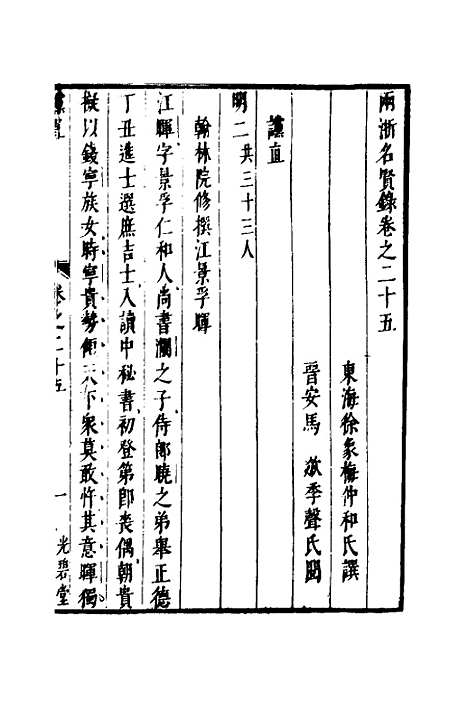 兩浙名賢錄卷之二十五
東海徐象梅仲和氏譔
晉安馬 歘季聲氏閱
讜直
明二共三十三人
翰林院修撰江景孚暉
江暉字景孚仁和人尚書瀾之子侍郎曉之弟舉正德
丁丑進士選庶吉士入讀中秘書初登第卽喪偶朝貴
擬以錢寧族女時寧貴勢傾天下衆莫敢忤其意暉獨
卷之二十五
一
光碧堂